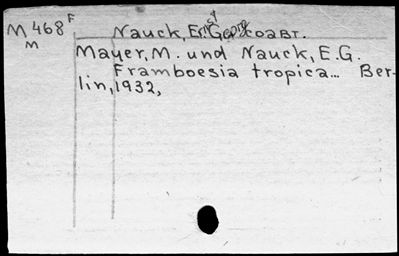 M 468 F
M
Nauck, Ernst Georg соавт.
Mayer, M. und Nauck, E.G.
Framboesia tropica... Ber-
lin, 1932,